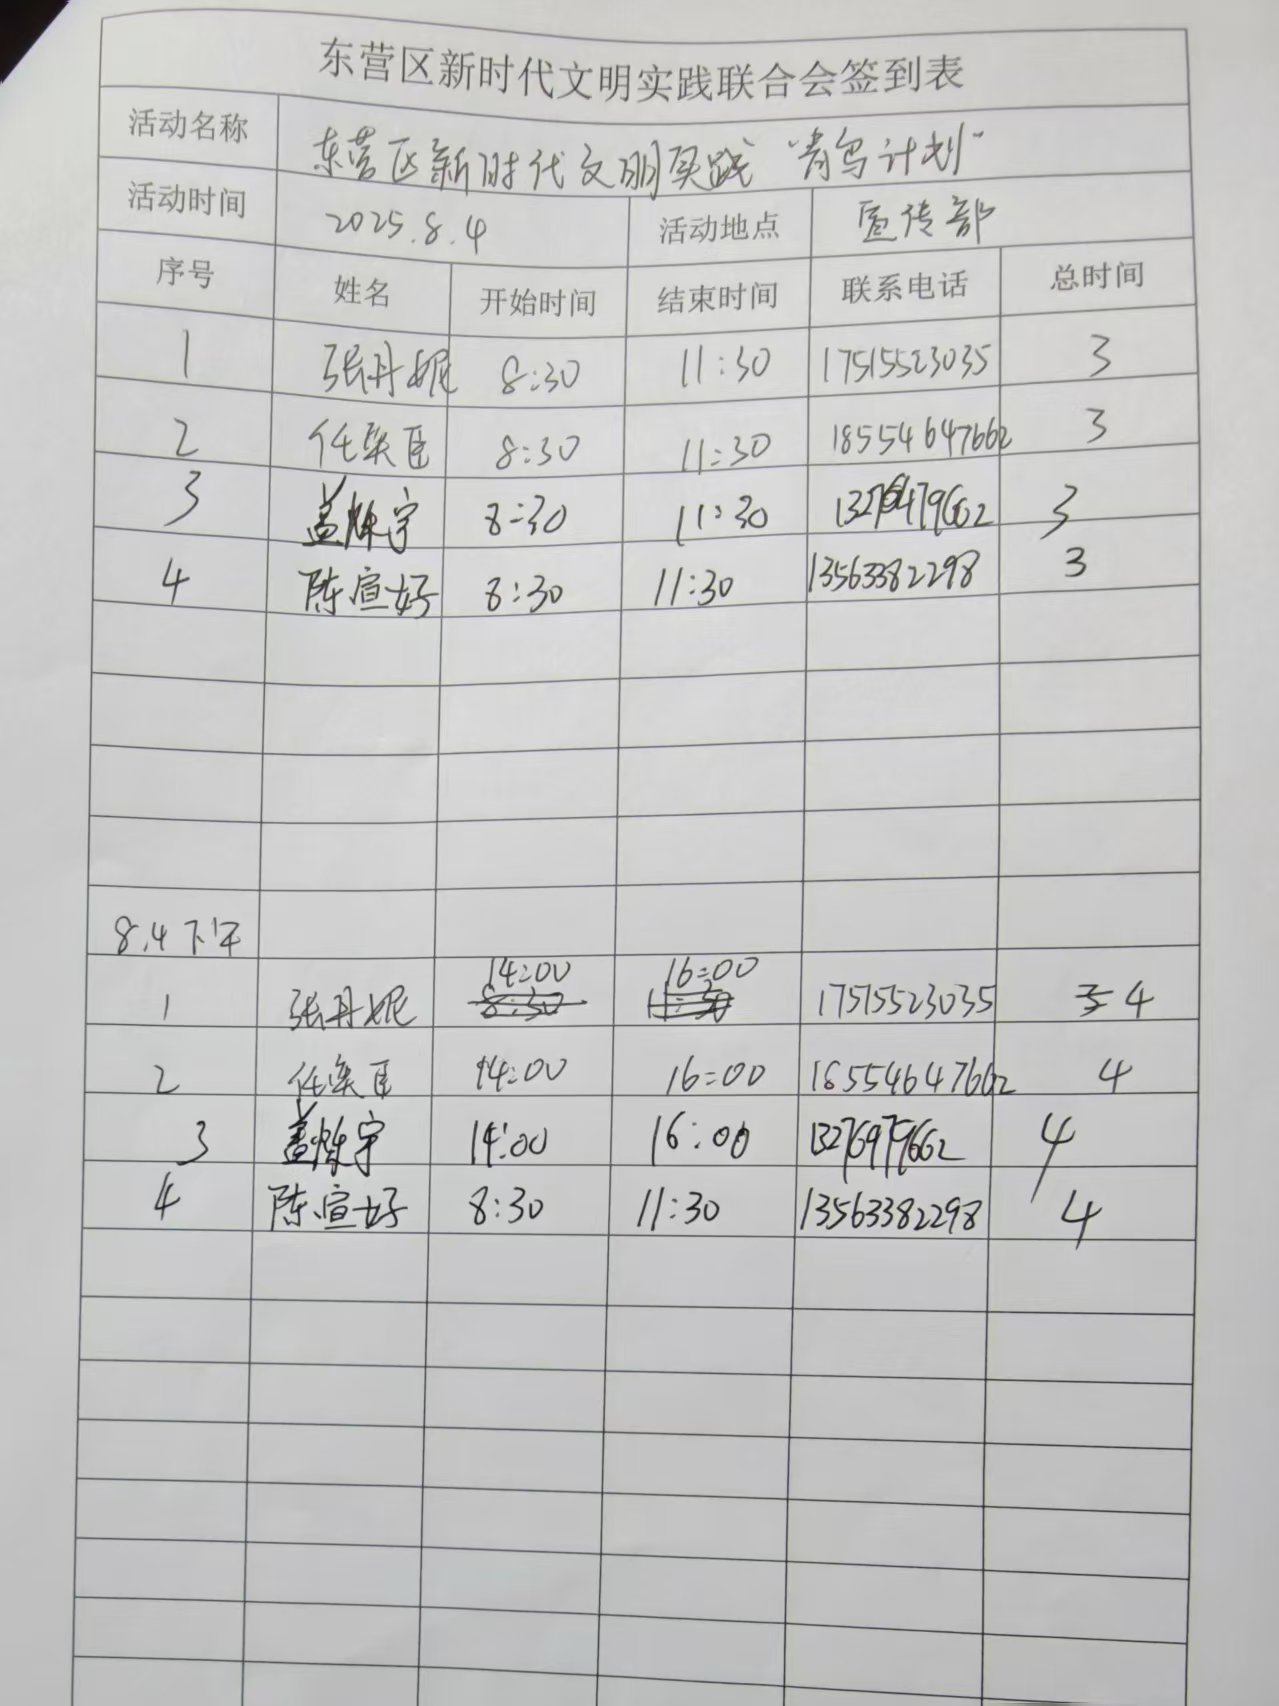 东营区新时代文明实践联合会签到表
活动名称 东营区新时代文明实践"青鸟计划"
活动时间 2025.8.4 活动地点 宣传部
序号 姓名 开始时间 结束时间 联系电话 总时间
1 张丹妮 8:30 11:30 17515523035 3
2 任奕臣 8:30 11:30 18554647662 3
3 盖烁宇 8:30 11:30 3
4 陈宣好 8:30 11:30 13563382298 3
8.4下午
14:00 16:00
1 张丹妮 8:30 11:30 17515523035 3 4
2 任奕臣 14:00 16:00 18554647662 4
3 盖烁宇 14:00 16:00 4
4 陈宣好 8:30 11:30 13563382298 4